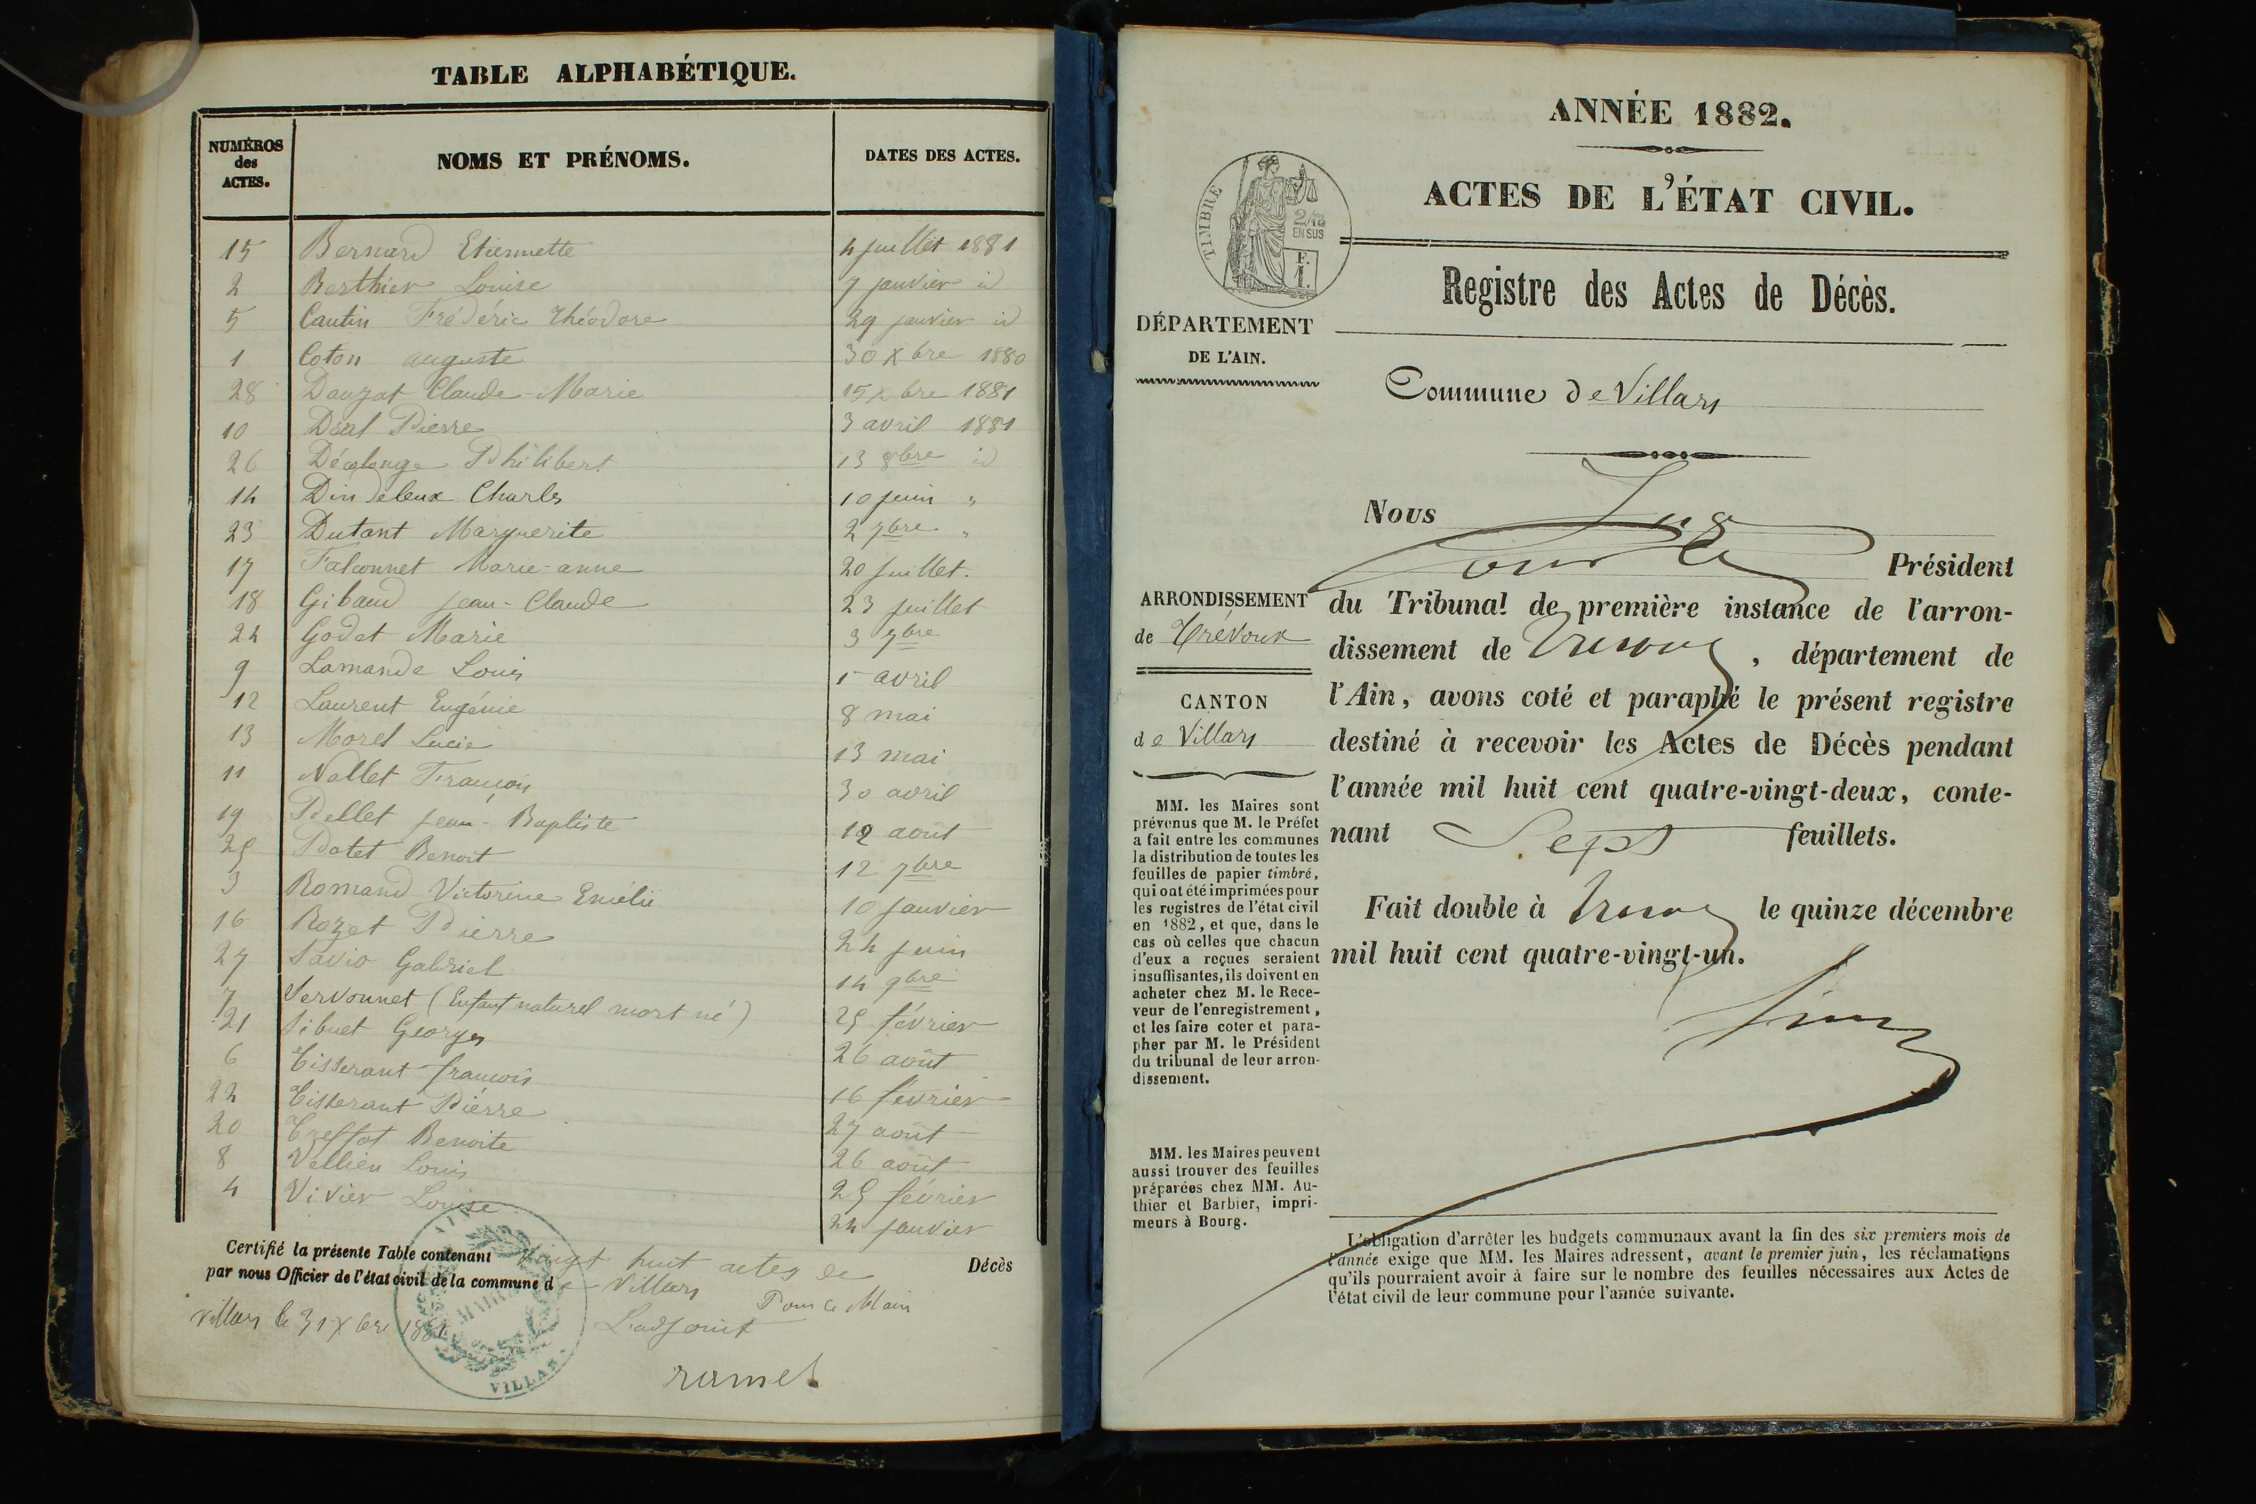 TABLE ALPHABÉTIQUE.
NUMÉROS des ACTES. NOMS ET PRÉNOMS. DATES DES ACTES.
15 Bernard Etiennette 4 juillet 1881
2 Berthier Louise 7 janvier id
5 Cantin Frédéric Théodore 29 janvier id
1 Coton auguste 30 Xbre 1880
28 Dauzat Claude-Marie 15 Xbre 1881
10 Déal Pierre 3 avril 1881
26 Philibert 13 8bre id
14 Dindeleux Charles 10 juin "
23 Dutant Marguerite 2 7bre "
17 Falconnet Marie-anne 20 juillet.
18 Gibaud jean-Claude 23 juillet
24 Godet Marie 3 7bre
9 Lamande Louis 1 avril
12 Laurent Eugénie 8 mai
13 Morel Lucie 13 mai
11 Nallet François 30 avril
19 Pellet jean-Baptiste 12 août
25 Potet Benoit 12 7bre
3 Romand Victorine Emélie 10 janvier
16 Rozet Pierre 24 juin
27 Savio Gabriel 14 9bre
7 Servonnet (Enfant naturel mort né) 25 février
21 Sibuet Georges 26 août
6 Tisserant françois 16 février
22 Tisserant Piérre 27 août
20 Treffot Benoite 26 août
8 Vellien Louis 25 février
4 Vivier Louise 24 janvier
Certifié la présente Table contenant Vingt huit actes de Décès
par nous Officier de l'état civil de la commune de Villars
Villars le 31 Xbre 1881 Pour le Maire
L'adjoint
ramel
MAIRIE
VILLARS
ANNÉE 1882.
ACTES DE L'ÉTAT CIVIL.
TIMBRE
2/10
EN SUS
F.
1.
Registre des Actes de Décès.
DÉPARTEMENT
DE L'AIN.
Commune de Villars
Nous
Président
ARRONDISSEMENT
de Trévoux
du Tribunal de première instance de l'arron-
dissement de Trévoux, département de
l'Ain, avons coté et paraphé le présent registre
destiné à recevoir les Actes de Décès pendant
l'année mil huit cent quatre-vingt-deux, conte-
nant Sept feuillets.
Fait double à Trévoux le quinze décembre
mil huit cent quatre-vingt-un.
CANTON
de Villars
MM. les Maires sont
prévenus que M. le Préfet
a fait entre les communes
la distribution de toutes les
feuilles de papier timbré,
qui ont été imprimées pour
les registres de l'état civil
en 1882, et que, dans le
cas où celles que chacun
d'eux a reçues seraient
insuffisantes, ils doivent en
acheter chez M. le Rece-
veur de l'enregistrement,
et les faire coter et para-
pher par M. le Président
du tribunal de leur arron-
dissement.
MM. les Maires peuvent
aussi trouver des feuilles
préparées chez MM. Au-
thier et Barbier, impri-
meurs à Bourg.
L'obligation d'arrêter les budgets communaux avant la fin des six premiers mois de
l'année exige que MM. les Maires adressent, avant le premier juin, les réclamations
qu'ils pourraient avoir à faire sur le nombre des feuilles nécessaires aux Actes de
l'état civil de leur commune pour l'année suivante.